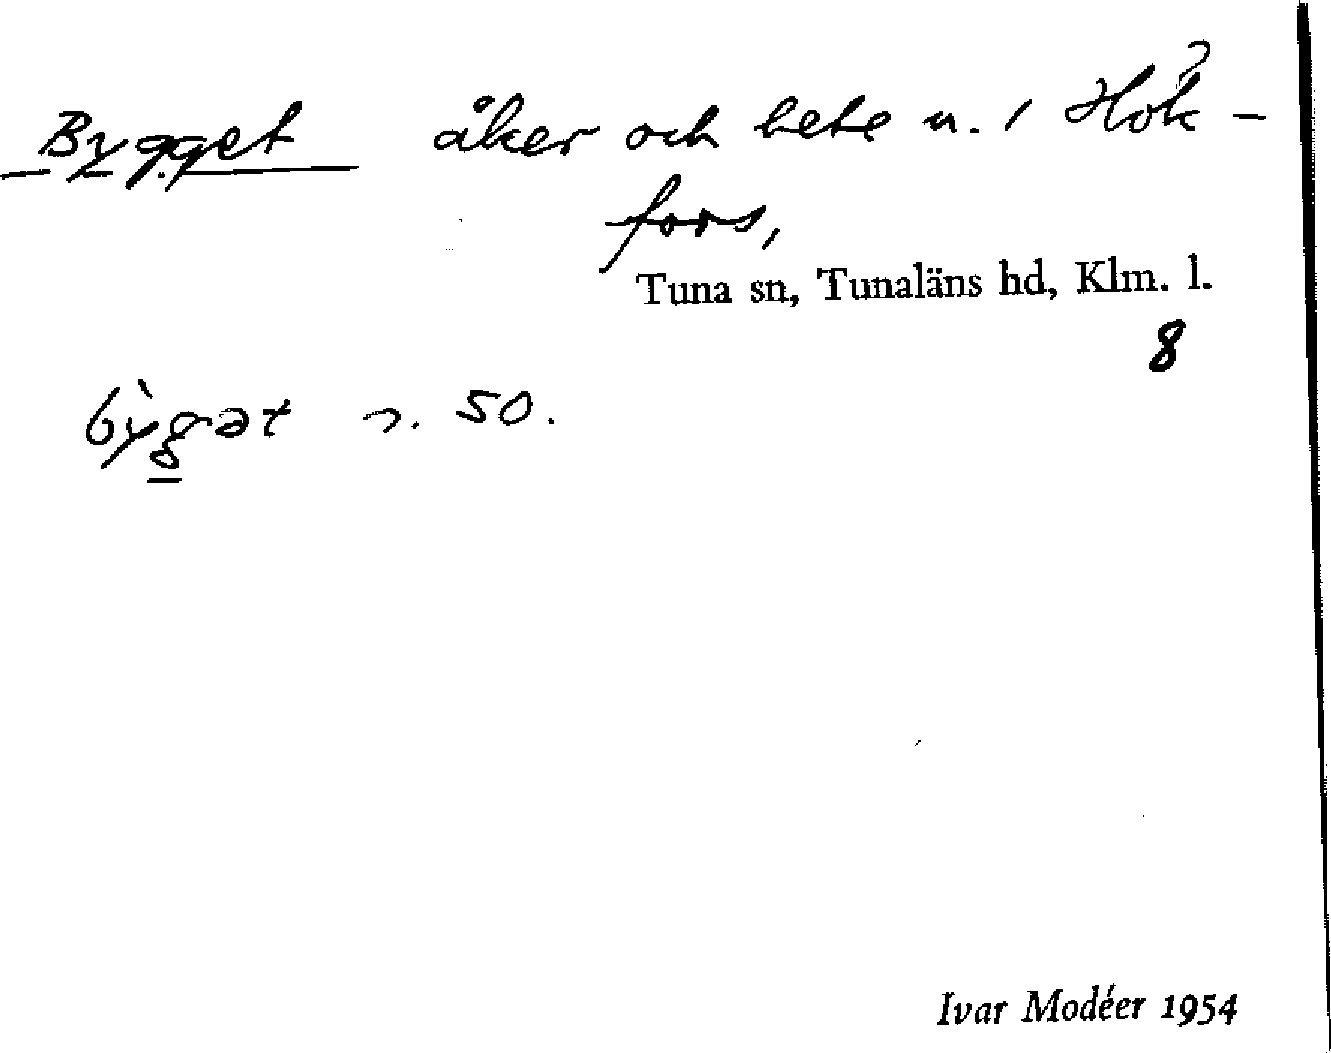 Bygget åker och bete u. 1 Hök-
fors,
Tuna sn, Tunaläns hd, Klm. l.
8
by̍gət n. 50.
Ivar Modéer 1954